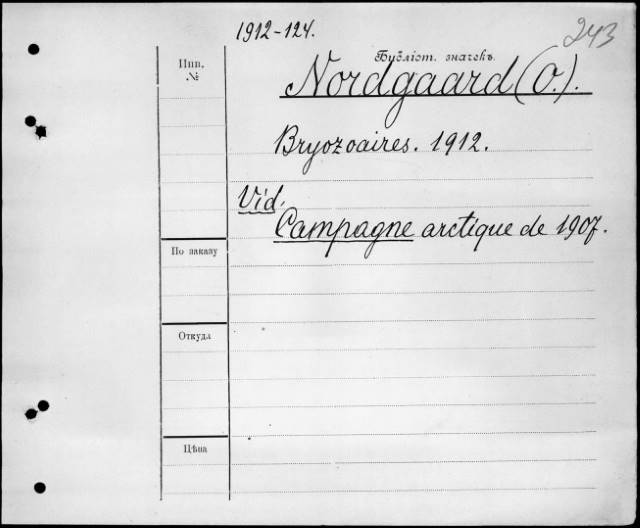 1912-124.
243
Инв.
№
Библіот. значекъ.
Nordgaard (O.).
Bryozoaires. 1912.
Vid.
Campagne arctique de 1907.
По заказу
Откуда
Цѣна